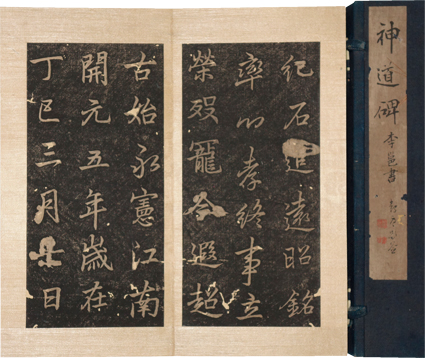 神道碑 李邕書
紀石追遠昭銘
率心孝終事立
榮歿寵今遐超
古始永憲江南
開元五年歲在
丁巳三月七日